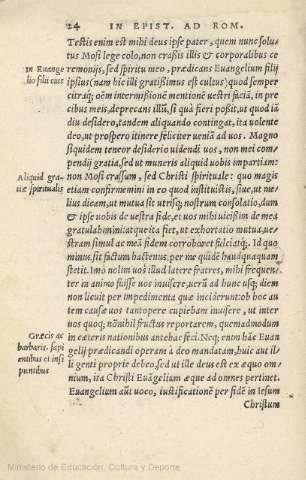 24 IN EPIST. AD ROM.
Testis enim est mihi deus ipse pater, quem nunc solu
tus Mosi lege colo, non crassis illis & corporalibus ce
In Euange
lio filii eius
remonijs, sed spiritu meo. prædicans Euangelium filij
ipsius (nam hic illi gratissimus est cultus) quod semper
citraq; oẽm intermissionẽ mentionẽ uestri faciã, in pre
cibus meis, deprecans illũ, si quà fieri possit, ut quod iã
diu desidero, tandem aliquando contingat, ita volente
deo, ut prospero itinere feliciter ueniã ad uos. Magno
siquidem teneor desiderio uidendi uos, non mei com‑
pendij gratia, sed ut muneris aliquid uobis impartiam:
Aliquid gra
tiæ spiritualis
non Mosi crassum, sed Christi spirituale: quo magis
etiam confirmemini in eo quod instituistis, siue, ut me
lius dicam, ut mutua sit utrisq; nostrum consolatio, dum
& ipse uobis de uestra fide, et uos mihi uicißim de mea
gratulabimini: atque ita fiet, ut exhortatio mutua, ue‑
stram simul ac meã fidem corroboret fulciatq;. Id quo
minus sit factum hactenus, per me quidẽ haudquaquam
stetit. Imò nolim uos illud latere fratres, mihi frequen‑
ter in animo fuisse uos inuisere, uerũ ad hunc usq; diem
non licuit per impedimenta quæ inciderunt: ob hoc au
tem causæ uos tantopere cupiebam inuisere, ut inter
uos quoq; nõnihil fructus reportarem, quemadmodum
Græcis ac
barbaris. sapi
entibus et insi
pientibus
in cæteris nationibus antehac feci. Neq; enim hãc Euan
gelij prædicandi operam à deo mandatam, huic aut il‑
li genti proprie debeo, sed ut ille deus est ex æquo om‑
nium, ita Christi Euãgelium æque ad omnes pertinet.
Euangelium aũt uoco, iustificationẽ per fidẽ in Iesum
Christum
Ministerio de Educación, Cultura y Deporte